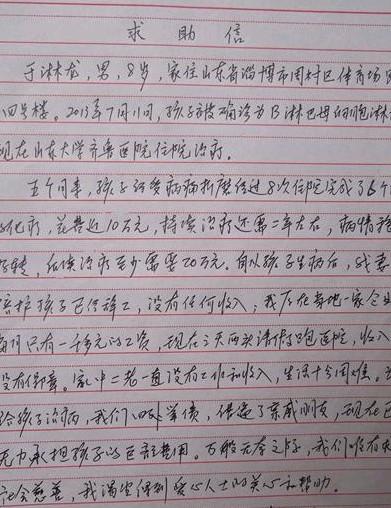 求助信
于淋龙，男，8岁，家住山东省淄博市周村区体育场
四号楼。2013年7月1日，孩子被确诊为B淋巴母细胞淋
现在山东大学齐鲁医院住院治疗。
五个月来，孩子经受病痛折磨经过8次住院完成了6个
化疗，花费近10万元，持续治疗还需二年左右，病情稳
好转，后续治疗至少需要20万元。自从孩子生病后，我妻
陪护孩子已停职工，没有任何收入；我又在当地一家企业
每月只有一千多元的工资，现在三天两头请假跑医院，收入
没有保障。家中二老一直没有工作和收入，生活十分困难。为
给孩子治病，我们四处举债，借遍了亲戚朋友，现在已
无力承担孩子的巨额费用。万般无奈之际，我们唯有求
社会慈善，我渴望得到爱心人士的关心和帮助。